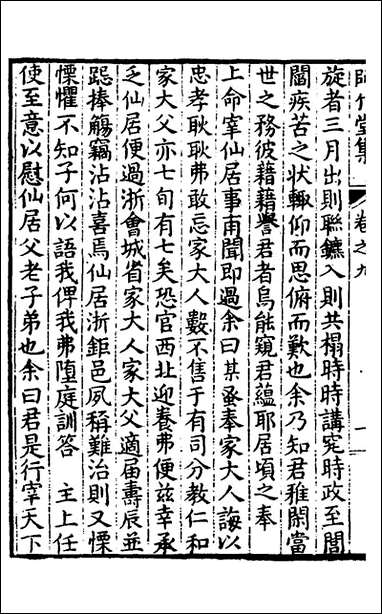 師竹堂集
卷之九
一
旋者三月出則聯鑣入則共榻時時講究時政至閭
閻疾苦之狀輙仰而思俯而歎也余乃知君雅閑當
世之務彼藉藉譽君者烏能窺君蘊耶居頃之奉
上命宰仙居事甫聞即過余曰某蚤奉家大人誨以
忠孝耿耿弗敢忘家大人數不售于有司分教仁和
家大父亦七旬有七矣恐官西北迎養弗便茲幸承
乏仙居便過浙會城省家大人家大父適届壽辰並
跽捧觴竊沾沾喜焉仙居浙鉅邑夙稱難治則又慄
慄懼不知子何以語我俾我弗墮庭訓答　主上任
使至意以慰仙居父老子弟也余曰君是行宰天下